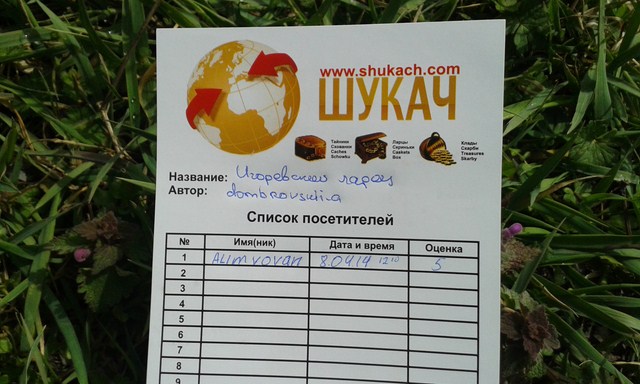 www.shukach.com
ШУКАЧ
Тайники
Сховання
Caches
Schowku
Ларцы
Скриньки
Caskets
Box
Клады
Скарби
Treasures
Skarby
Название: Игоревский ларец
Автор: dombrovskii.a
Список посетителей
№ Имя(ник) Дата и время Оценка
1 ALIM vovan 8.04 14 12 10 5
2
3
4
5
6
7
8
9